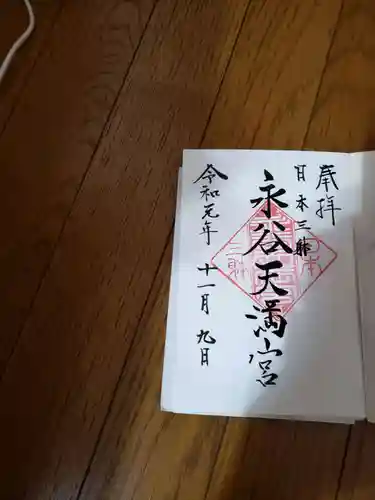 奉拝
日本三躰
永谷天満宮
令和元年
十一月九日